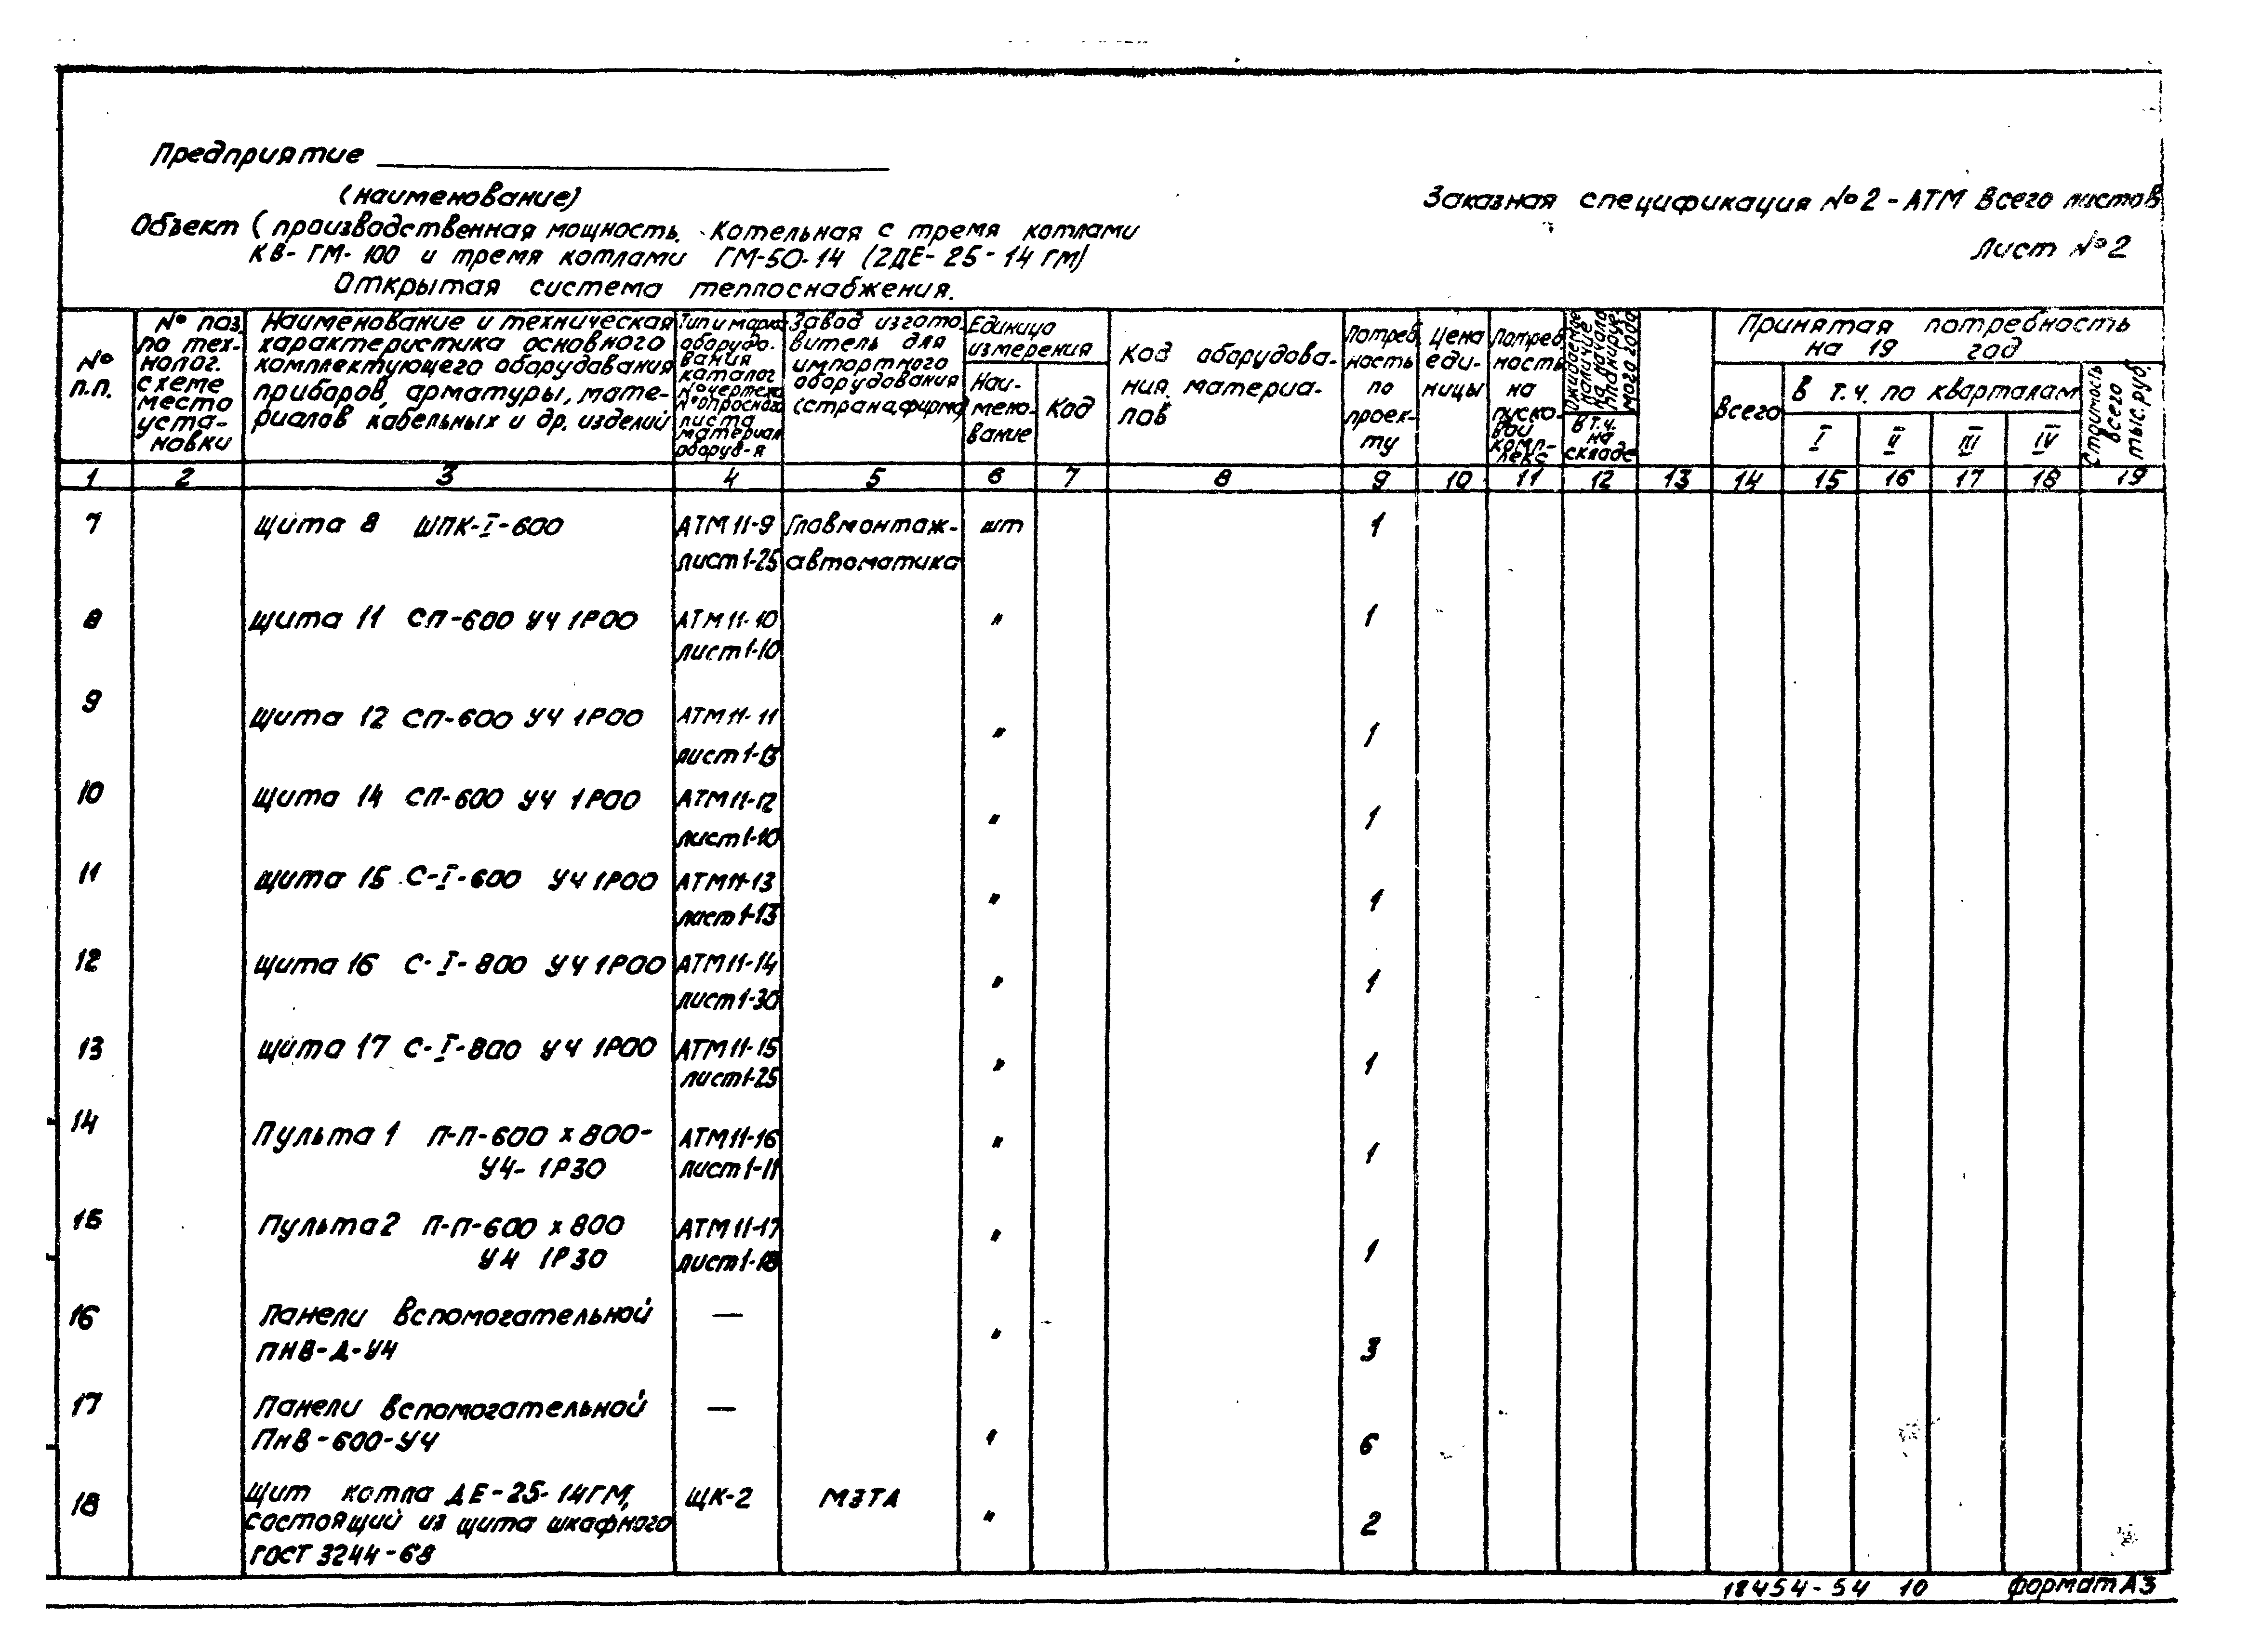 Предприятие
(наименование)
Заказная спецификация №2-АТМ Всего листов
Объект (производственная мощность. Котельная с тремя котлами
Лист №2
КВ-ГМ-100 и тремя котлами ГМ-50-14 (2ДЕ-25-14ГМ)
Открытая система теплоснабжения.
№ п.п.
№ поз. по тех-нолог. схеме место уста-новки
Наименование и техническая
характеристика основного
комплектующего оборудования
приборов, арматуры, мате-
риалов кабельных и др. изделий
Тип и марка
оборудо-
вания
каталог
№ чертежа
№ опросного
листа
материал
оборуд-я
Завод изгото-
витель для
импортного
оборудования
(страна, фирма)
Единица
измерения
Наи-
мено-
вание
Код
Код оборудова-
ния. материа-
лов
Потреб
ность
по
проек-
ту
Цена
еди-
ницы
Потреб
ность
на
пуско-
вой
комп-
лекс
Ожидаемое
наличие
на начало
планируе-
мого года
В т.ч.
на
складе
Принятая потребность
на 19 год
Всего
В т.ч. по кварталам
I II III IV
Стоимость
всего
тыс.руб.
1 2 3 4 5 6 7 8 9 10 11 12 13 14 15 16 17 18 19
7 Щита 8 ШПК-I-600 АТМ11-9 Главмонтаж- шт 1
лист1-25 автоматика
8 Щита 11 СП-600 У4 1Р00 АТМ11-10 " 1
лист1-10
9 Щита 12 СП-600 У4 1Р00 АТМ11-11 " 1
лист1-13
10 Щита 14 СП-600 У4 1Р00 АТМ11-12 " 1
лист1-10
11 Щита 15 С-I-600 У4 1Р00 АТМ11-13 " 1
лист1-13
12 Щита 16 С-I-800 У4 1Р00 АТМ11-14 " 1
лист1-30
13 Щита 17 С-I-800 У4 1Р00 АТМ11-15 " 1
лист1-25
14 Пульта 1 П-П-600х800- АТМ11-16 " 1
У4-1Р30 лист1-11
15 Пульта 2 П-П-600х800 АТМ11-17 " 1
У4 1Р30 лист1-18
16 Панели вспомогательной — " 3
ПНВ-Д-У4
17 Панели вспомогательной — " 6
ПнВ-600-У4
18 Щит котла ДЕ-25-14ГМ, ЩК-2 МЗТА " 2
состоящий из щита шкафного
ГОСТ 3244-68
18454-54 10 формат А3